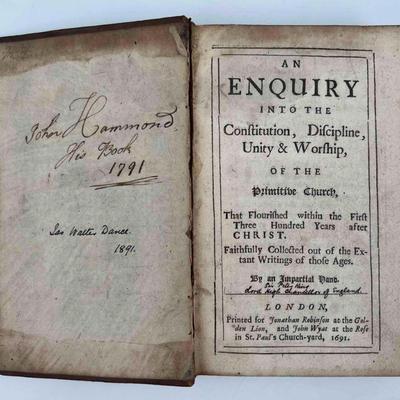 John Hammond
His Book
1791
Jas Walter Dance.
1891.
AN
ENQUIRY
INTO THE
Constitution, Discipline,
Unity & Worship,
OF THE
Primitive Church,
That Flourished within the First
Three Hundred Years after
CHRIST.
Faithfully Collected out of the Ex-
tant Writings of those Ages.
By an Impartial Hand.
Sir Peter King
Lord High Chancellor of England.
LONDON,
Printed for Jonathan Robinson at the Gol-
den Lion, and John Wyat at the Rose
in St. Paul's Church-yard, 1691.